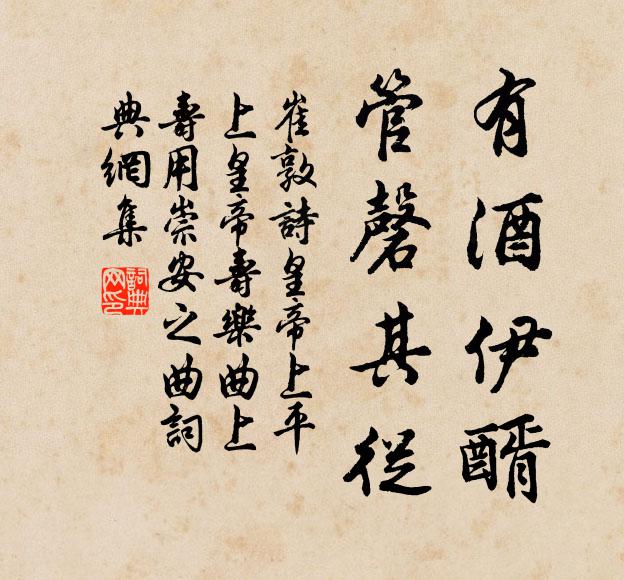 有酒伊醑
管磬其從
崔敦詩皇帝上平
上皇帝壽樂曲上
壽用崇安之曲詞
典網集
詞典
网印